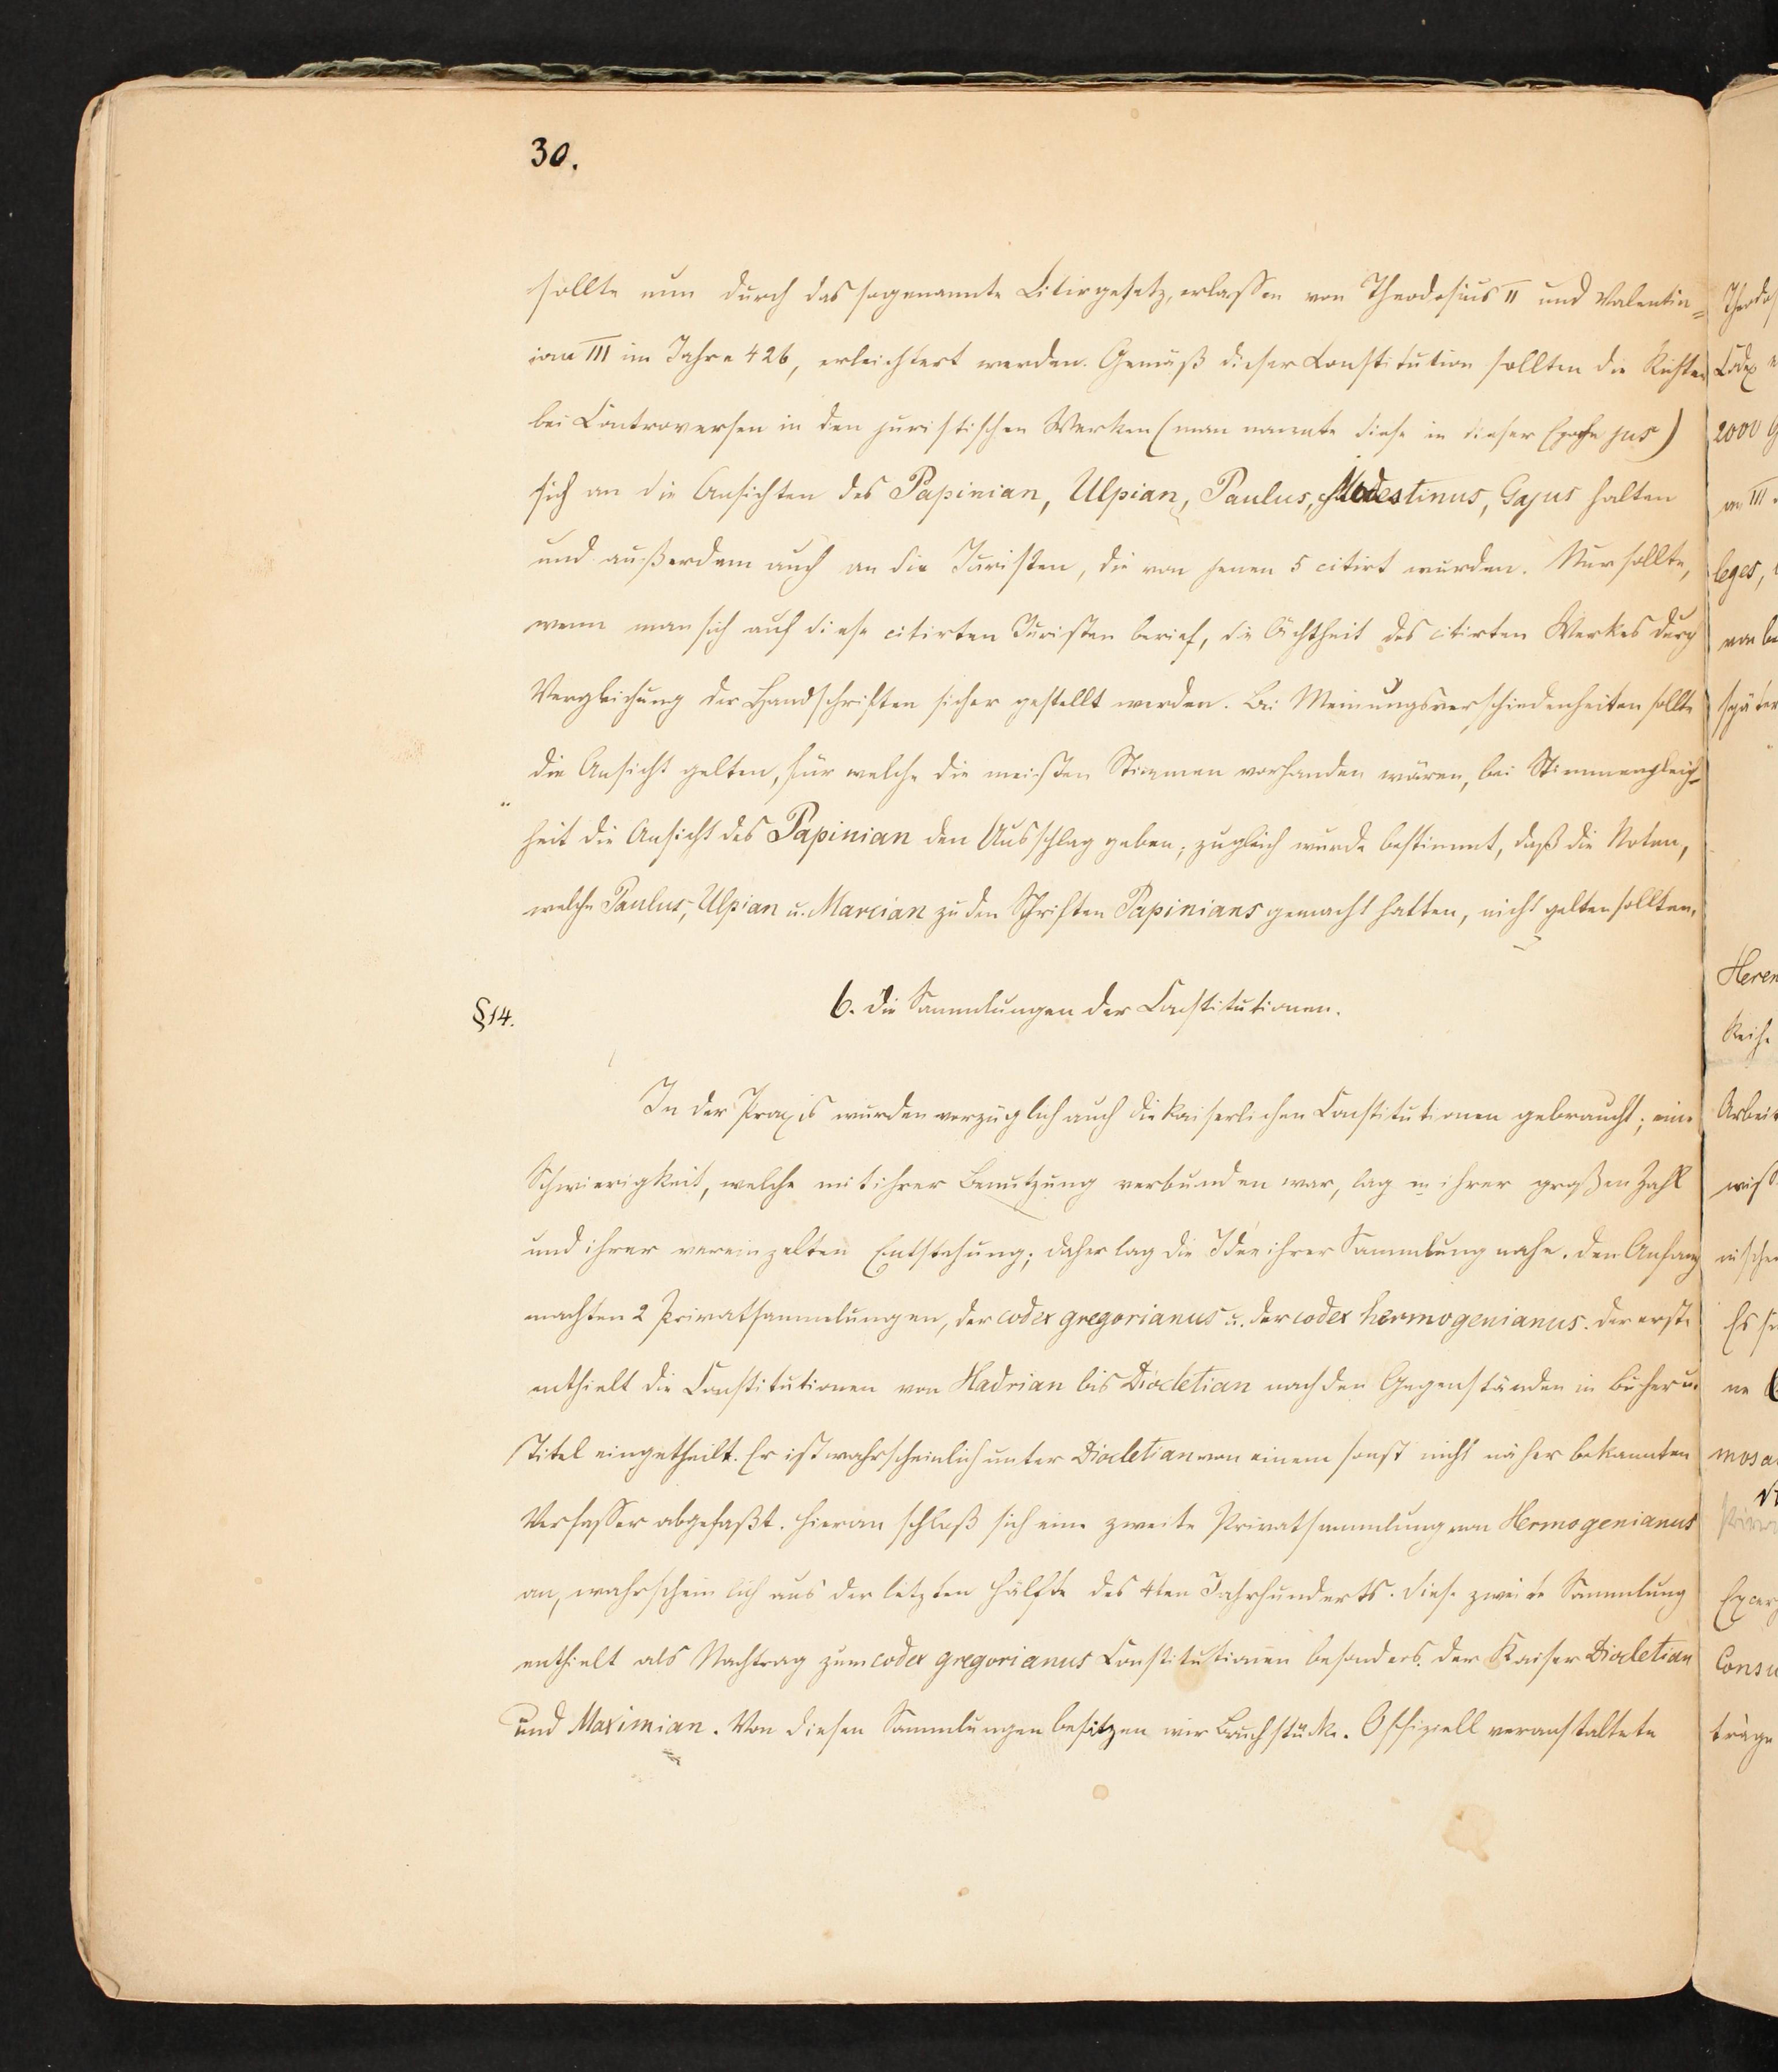 30.
sollte nun durch das sogenannte Citirgesetz, erlassen von Theodosius II und Valentin=
ian III im Jahre 426, erleichtert werden. Gemäß dieser Constitution sollten die Richter
bei Controversen in den juristischen Werken (man nannte diese in dieser Epoche jus)
sich an die Ansichten des Papinian, Ulpian, Paulus, Modestinus, Gajus halten
und außerdem auch an die Juristen, die von jenen 5 citirt wurden. Nur sollte,
wenn man sich auf diese citirten Juristen berief, die Ächtheit des citirten Werkes durch
Vergleichung der Handschriften sicher gestellt werden. Bei Meinungsverschiedenheiten sollte
die Ansicht gelten, für welche die meisten Stimmen vorhanden wären, bei Stimmengleich-
heit die Ansicht des Papinian den Ausschlag geben; zugleich wurde bestimmt, daß die Noten,
welche Paulus, Ulpian u. Marcian zu den Schriften Papinians gemacht hatten, nicht gelten sollten.
§14. 6. Die Sammlungen der Constitutionen.
In der Praxis wurden vorzüglich auch die kaiserlichen Constitutionen gebraucht; eine
Schwierigkeit, welche mit ihrer Benutzung verbunden war, lag in ihrer großen Zahl
und ihrer vereinzelten Entstehung; daher lag die Idee ihrer Sammlung nahe. Den Anfang
machten 2 Privatsammlungen, der codex gregorianus u. der codex hermogenianus. Der erste
enthielt die Constitutionen von Hadrian bis Diocletian nach den Gegenständen in Bücher u.
Titel eingetheilt. Er ist wahrscheinlich unter Diocletian von einem sonst nicht näher bekannten
Verfasser abgefaßt. Hieran schloß sich eine zweite Privatsammlung von Hermogenianus
an, wahrscheinlich aus der letzten Hälfte des 4ten Jahrhunderts. Diese zweite Sammlung
enthielt als Nachtrag zum codex gregorianus Constitutionen besonders der Kaiser Diocletian
und Maximian. Von diesen Sammlungen besitzen wir Bruchstücke. Offiziell veranstaltete